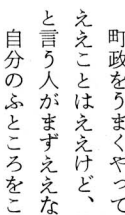 町政をうまくやって
ええことはええけど、
と言う人がまずええな
自分のふところをこ